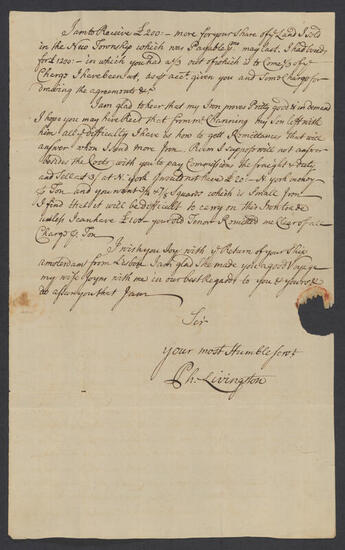 I am to Receive £200:- more for your Share of y.e Land I sold
in the New Township which was Payable y.e 1 may last. I had
for £1200:- in which you had a/3 out of which is to Come a/3 of y.e
Charg I have been at, as p acc.t given you and Some Charge for
drawing the agreements &c.
I am glad to hear that my Iron proves Pretty good & in demand
I hope you may have Rec.d that from m.r Channing my Son left with
him all y.e difficulty I have is how to gett Remittances that will
answer when I Send more Iron. Rum I suppose will not answer
besides the Costs with you to pay Commissions the freight & Duty
and Sell at 3/ at N: York I would not here £20:- N: York money
p Ton and you want 3/4 & 7/8 Squares which is Small Iron
I find that it will be difficult to carry on this Iron trade
unless I can have £100 your Old Tenor Remitted me Clear of all
Charg p Ton
I wish you Joy with y.e Return of your Ship
amsterdam from Lisbon I am glad She made you a good Voyage
my wife Joyns with me in our best Regards to you & yours &
do assure you that I am
Sir
your most Humble Serv.t
Ph: Livingston